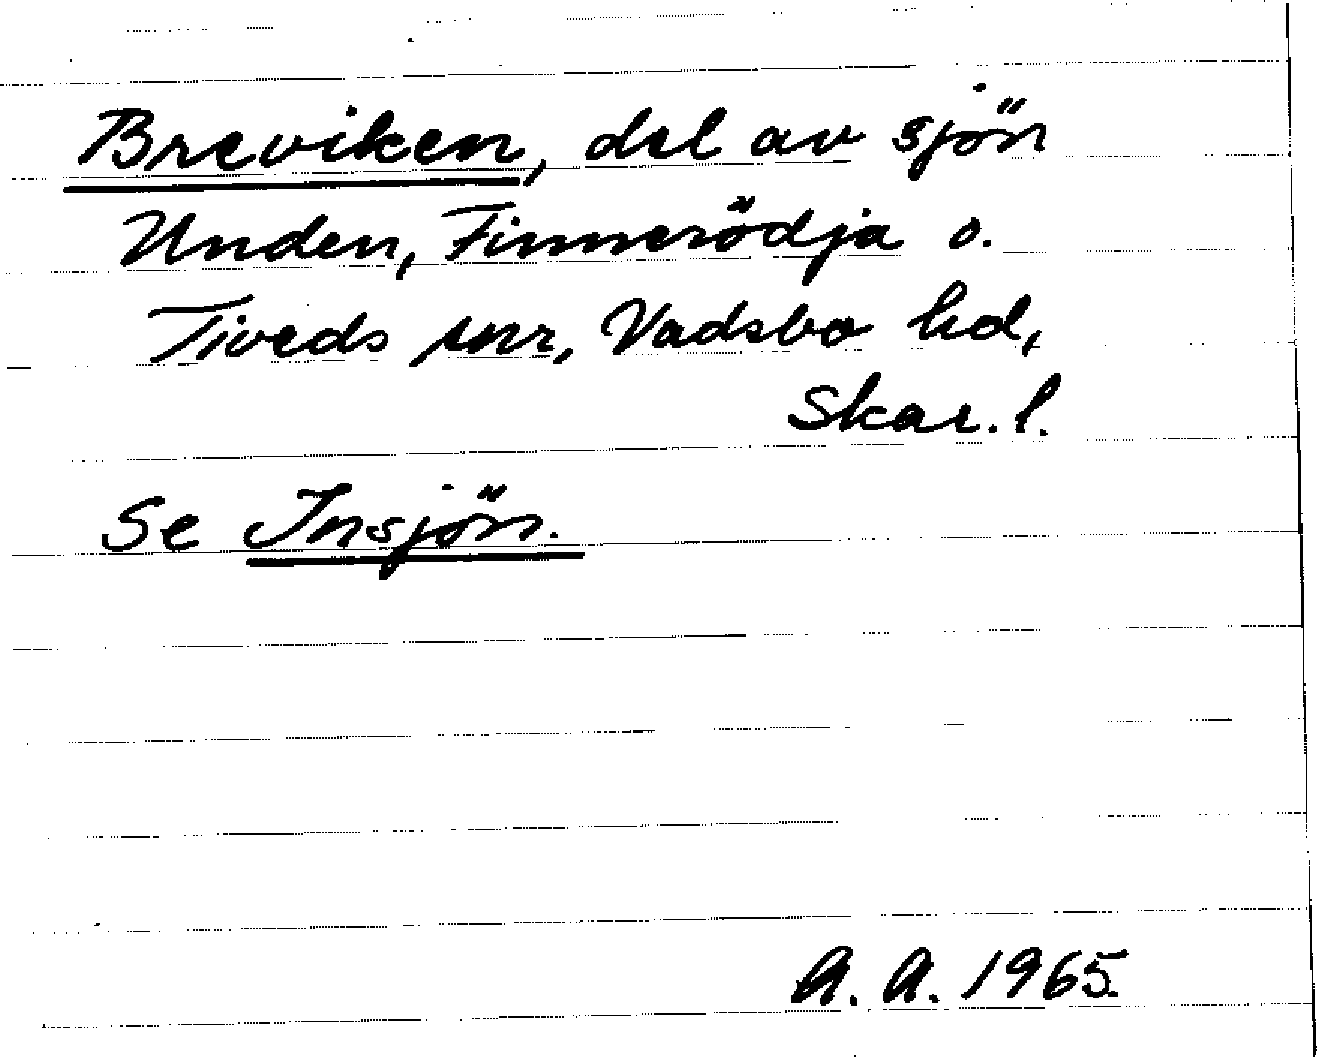 Breviken, del av sjön
Unden, Finnerödja o.
Tiveds snr, Vadsbo hd,
Skar. l.
Se Insjön.
A. A. 1965.